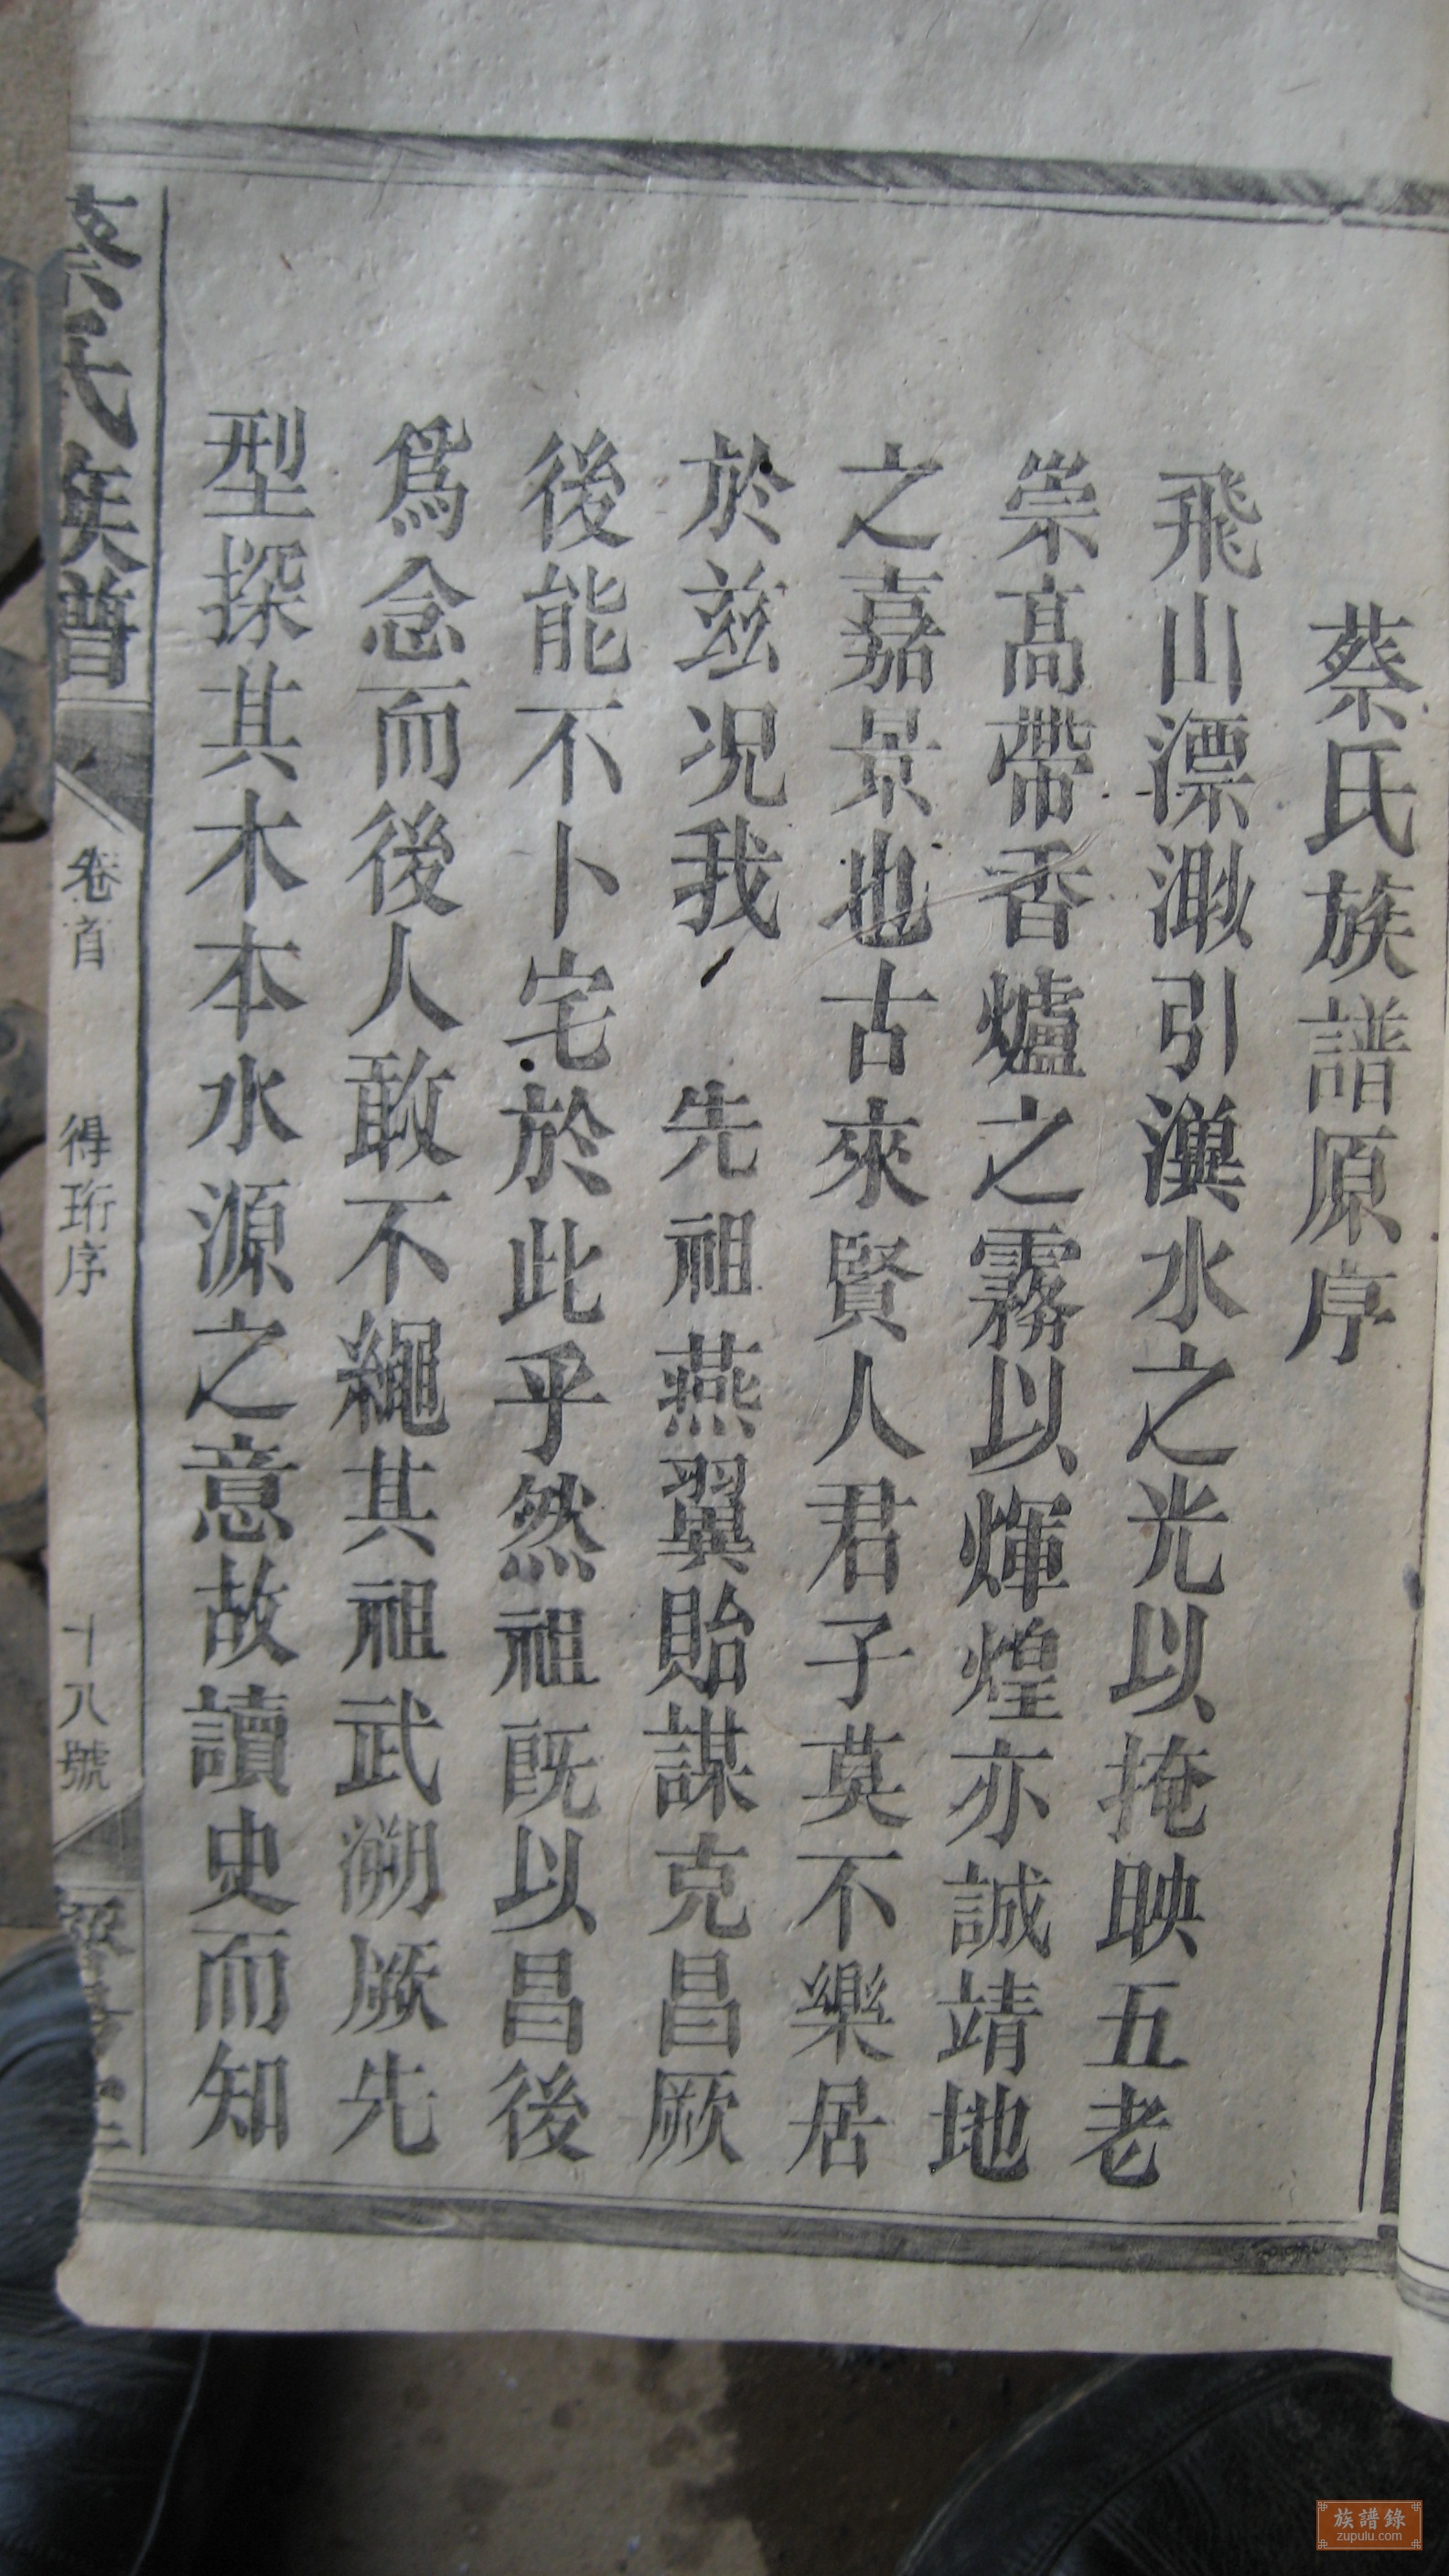 蔡氏族譜原序
飛山漂漱引漢水之光以掩映五老
崇高帶香爐之霧以輝煌亦誠靖地
之嘉景也古來賢人君子莫不樂居
於茲况我　先祖燕翼貽謀克昌厥
後能不卜宅於此乎然祖既以昌後
爲念而後人敢不繩其祖武溯厥先
型探其木本水源之意故讀史而知
蔡氏族譜
卷首
得珩序
十八號
族譜錄
zupulu.com